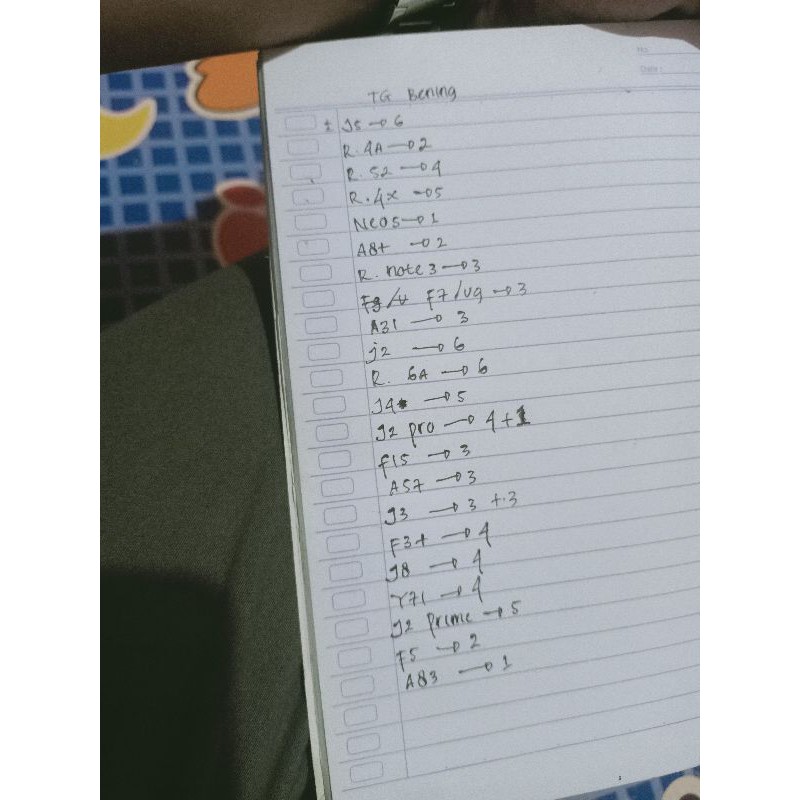 No:
Date:
TG Bening
± J5 → 6
R. 4A → 2
R. S2 → 4
R. 4x → 5
Neo5 → 1
A8+ → 2
R. note 3 → 3
F7/V9 → 3
A31 → 3
j2 → 6
R. 6A → 6
J4 → 5
J2 pro → 4+1
F15 → 3
A57 → 3
J3 → 3 + 3
F3+ → 4
J8 → 4
Y71 → 4
J2 prime → 5
F5 → 2
A83 → 1